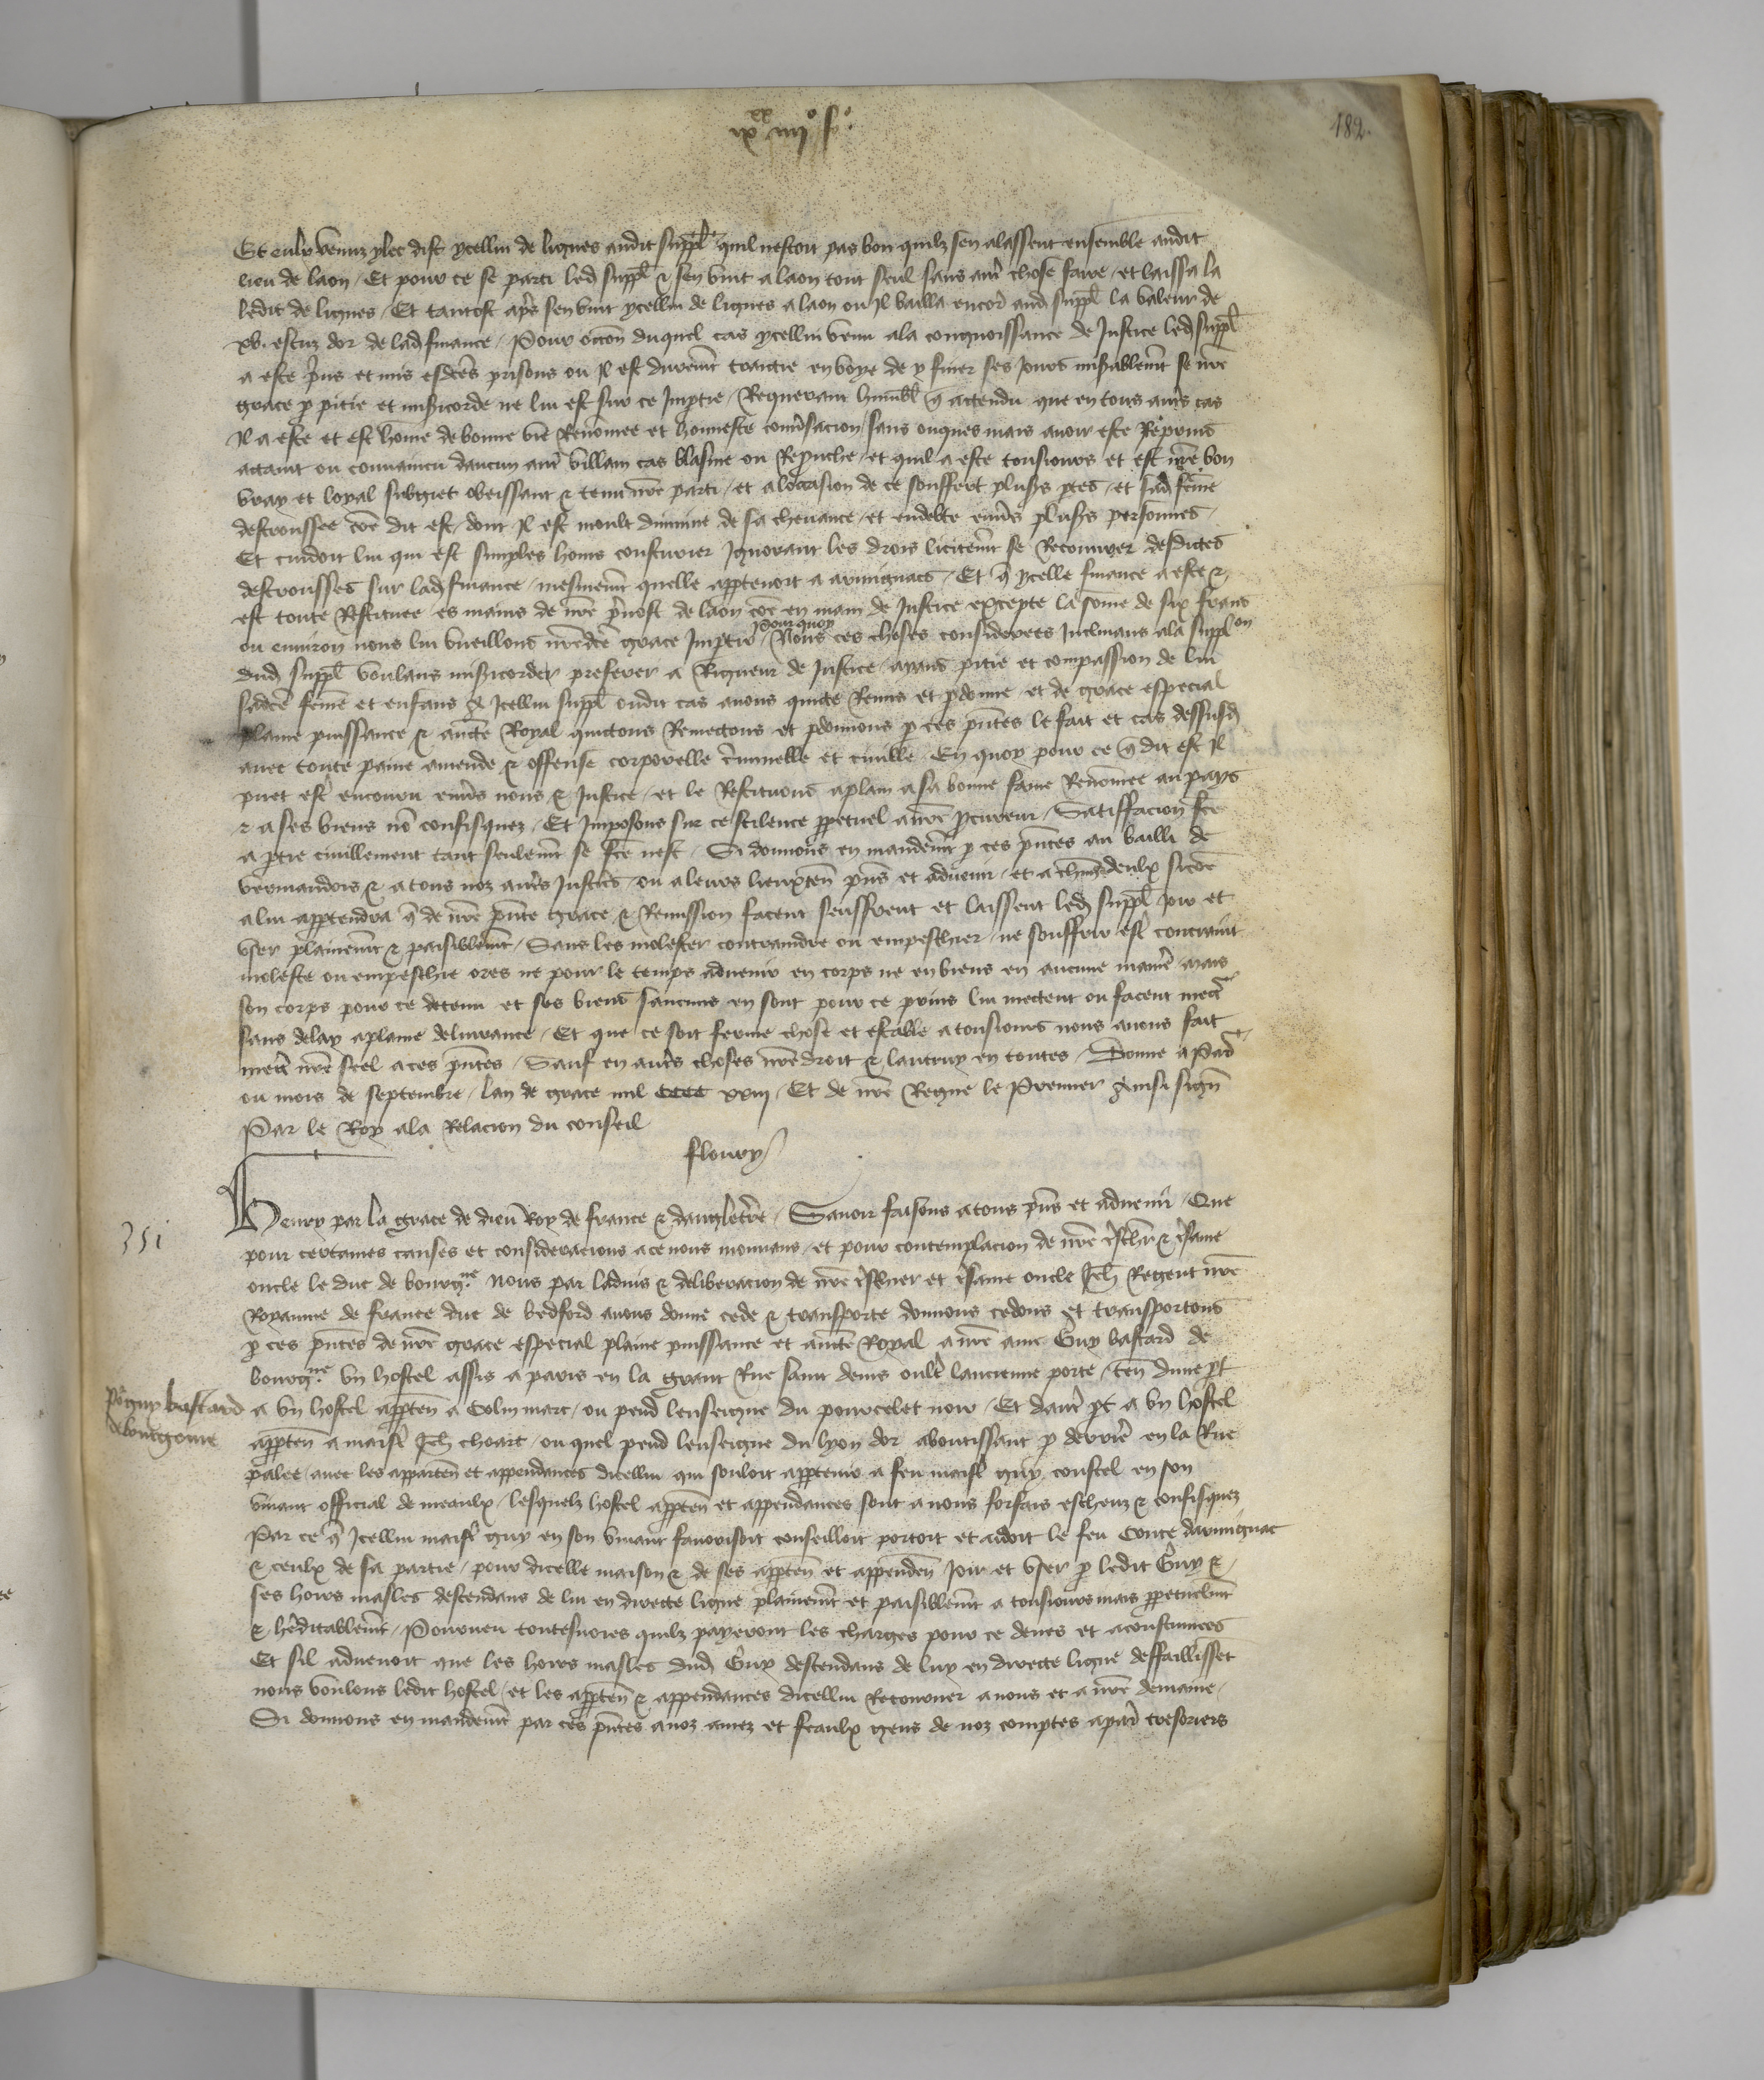 ix xx iiij o f o
182.
Et eulx venuz ylec dist ycellui de lignes audit suppl quil nestoit pas bon quilz sen alassent ensemble audit
lieu de laon / Et pour ce se parti led suppl & sen vint a laon tout seul sans autre chose faire / et laissa la
ledit de lignes / Et tantost apres sen vint ycellui de lignes a laon ou Il bailla encor aud suppl la valeur de
xv. escuz dor de lad finance / Pour occon duquel cas ycellui venu ala congnoissance de Justice led suppl
a este prins et mis esdces prisons ou Il est durement traictie en voye de y finer ses jours miserablemt se nre
grace p pitie et misericorde ne lui est sur ce Imptie / Requerant humblt q attendu que en tous autres cas
Il a este et est home de bonne vie Renommee et honneste conversacion / sans onques mais avoir este Reprins
attaint ou convaincu daucun autre villain cas blasme ou Reprouche / et quil a este tousiours et est nre bon
vray et loyal subgiet obeissant & tenu nre parti / et a loccasion de ce souffert plusrs ptes / et sad feme
destroussee coe dit est / dont Il est moult diminue de sa chevance / et endebte envers plusrs personnes /
Et cuidoit lui qui est simples homs cousturier Ignorant les drois licitemt se Recouvrer desdictes
destrousses sur lad finance / mesmemt quelle apptenoit a armignacs / Et q ycelle finance a este &
est toute Restituee es mains de nre prevost de laon coe en main de Justice excepte la some de six frans
ou environ nous lui vueillons nredce grace Imptir / Pour quoy Nous ces choses considerees Inclinans ala supplon
dud suppl voulans misericorder preferer a Rigueur de Justice / ayans pitie et compassion de lui
sadce feme et enfans A Icellui suppl oudit cas avons quicte Remis et pdonne / et de grace especial
plaine puissance & aucte Royal quictons Remectons et pdonnons p ces pntes le fait et cas dessusd
avec toute paine amende & offense corporelle criminelle et civille En quoy pour ce q dit est Il
puet estre encouru envers nous & Justice / et le Restituons aplain asa bonne fame Renommee au pays
& a ses biens no confisquez / Et Imposons sur ce silence ppetuel a nre pcureur / Satiffacion fce
a ptie civillement tant seulemt se fce nest / Si donnons en mandemt p ces pntes au bailli de
vermandois & a tous noz autres Justices / ou a leurs lieuxten pns et advenir / et a chun deulx sicoe
alui apptendra q de nre pnte grace & Remission facent seuffrent et laissent led suppl joir et
user plainemt & paisiblemt / Sans les molester contraindre ou empeschier / ne souffrir estre contraint
moleste ou empeschie ores ne pour le temps advenir en corps ne en biens en aucune maniere mais
son corps pour ce detenu et ses biens saucuns en sont pour ce prins lui mectent ou facent mectre
sans delay a plaine delivrance / Et que ce soit ferme chose et estable a tousiours nous avons fait
mectre nre scel a ces pntes / Sauf en autres choses nre droit & lautruy en toutes / Donne a Paris
ou mois de septembre / lan de grace mil cccc xxiij / Et de nre Regne le Premier Ainsi signe
Par le Roy ala Relacion du conseil
floury
Henry par la grace de dieu Roy de france & dangleterre / Savoir faisons atous pns et advenir / Que
pour certaines causes et consideracions a ce nous mouvans / et pour contemplacion de nre treschr & tresame
oncle le duc de bourgne. Nous par ladvis & deliberacion de nre treschier et tresame oncle Jeh Regent nre
Royaume de france duc de bedford avons donne cede & transporte donnons cedons et transportons
p ces pntes de nre grace especial plaine puissance et aucte Royal a nre ame Guy bastard de
bourgne. un hostel assis a paris en la grant Rue saint denis oultre lancienne porte / ten dune pt
a un hostel appten a Colin marc / ou pend lenseigne du pourcelet noir / Et dautre pt a un hostel
appten a maistre Jeh choart / ou quel pend lenseigne du lyon dor aboutissant p derriere en la Rue
palee / avec les apparten et appendances dicellui qui souloit apptenir a feu maistre guy coustel en son
vivant official de meaulx / lesquelz hostel appten et appendances sont a nous forfais escheuz & confisquez
Par ce q Icellui maistre guy en son vivant favorisoit conseilloit portoit et aidoit le feu Conte darmignac
& ceulx de sa partie / pour dicelle maison & de ses appten et appenden joir et user p ledit Guy &
ses hoirs masles descendans de lui en directe ligne plainemt et paisiblemt a tousioursmais ppetuelmt
& hereditablemt / Pourveu toutesvoies quilz payeront les charges pour ce deues et acoustumees
Et sil advenoit que les hoirs masles dud Guy descendans de luy en directe ligne deffaillisset
nous voulons ledit hostel / et les appten & appendances dicellui Retourner a nous et a nre demaine /
Si donnons en mandemt par ces pntes a noz amez et feaulx gens de noz comptes a paris tresoriers
351
Po guy bastard
de bourgongne